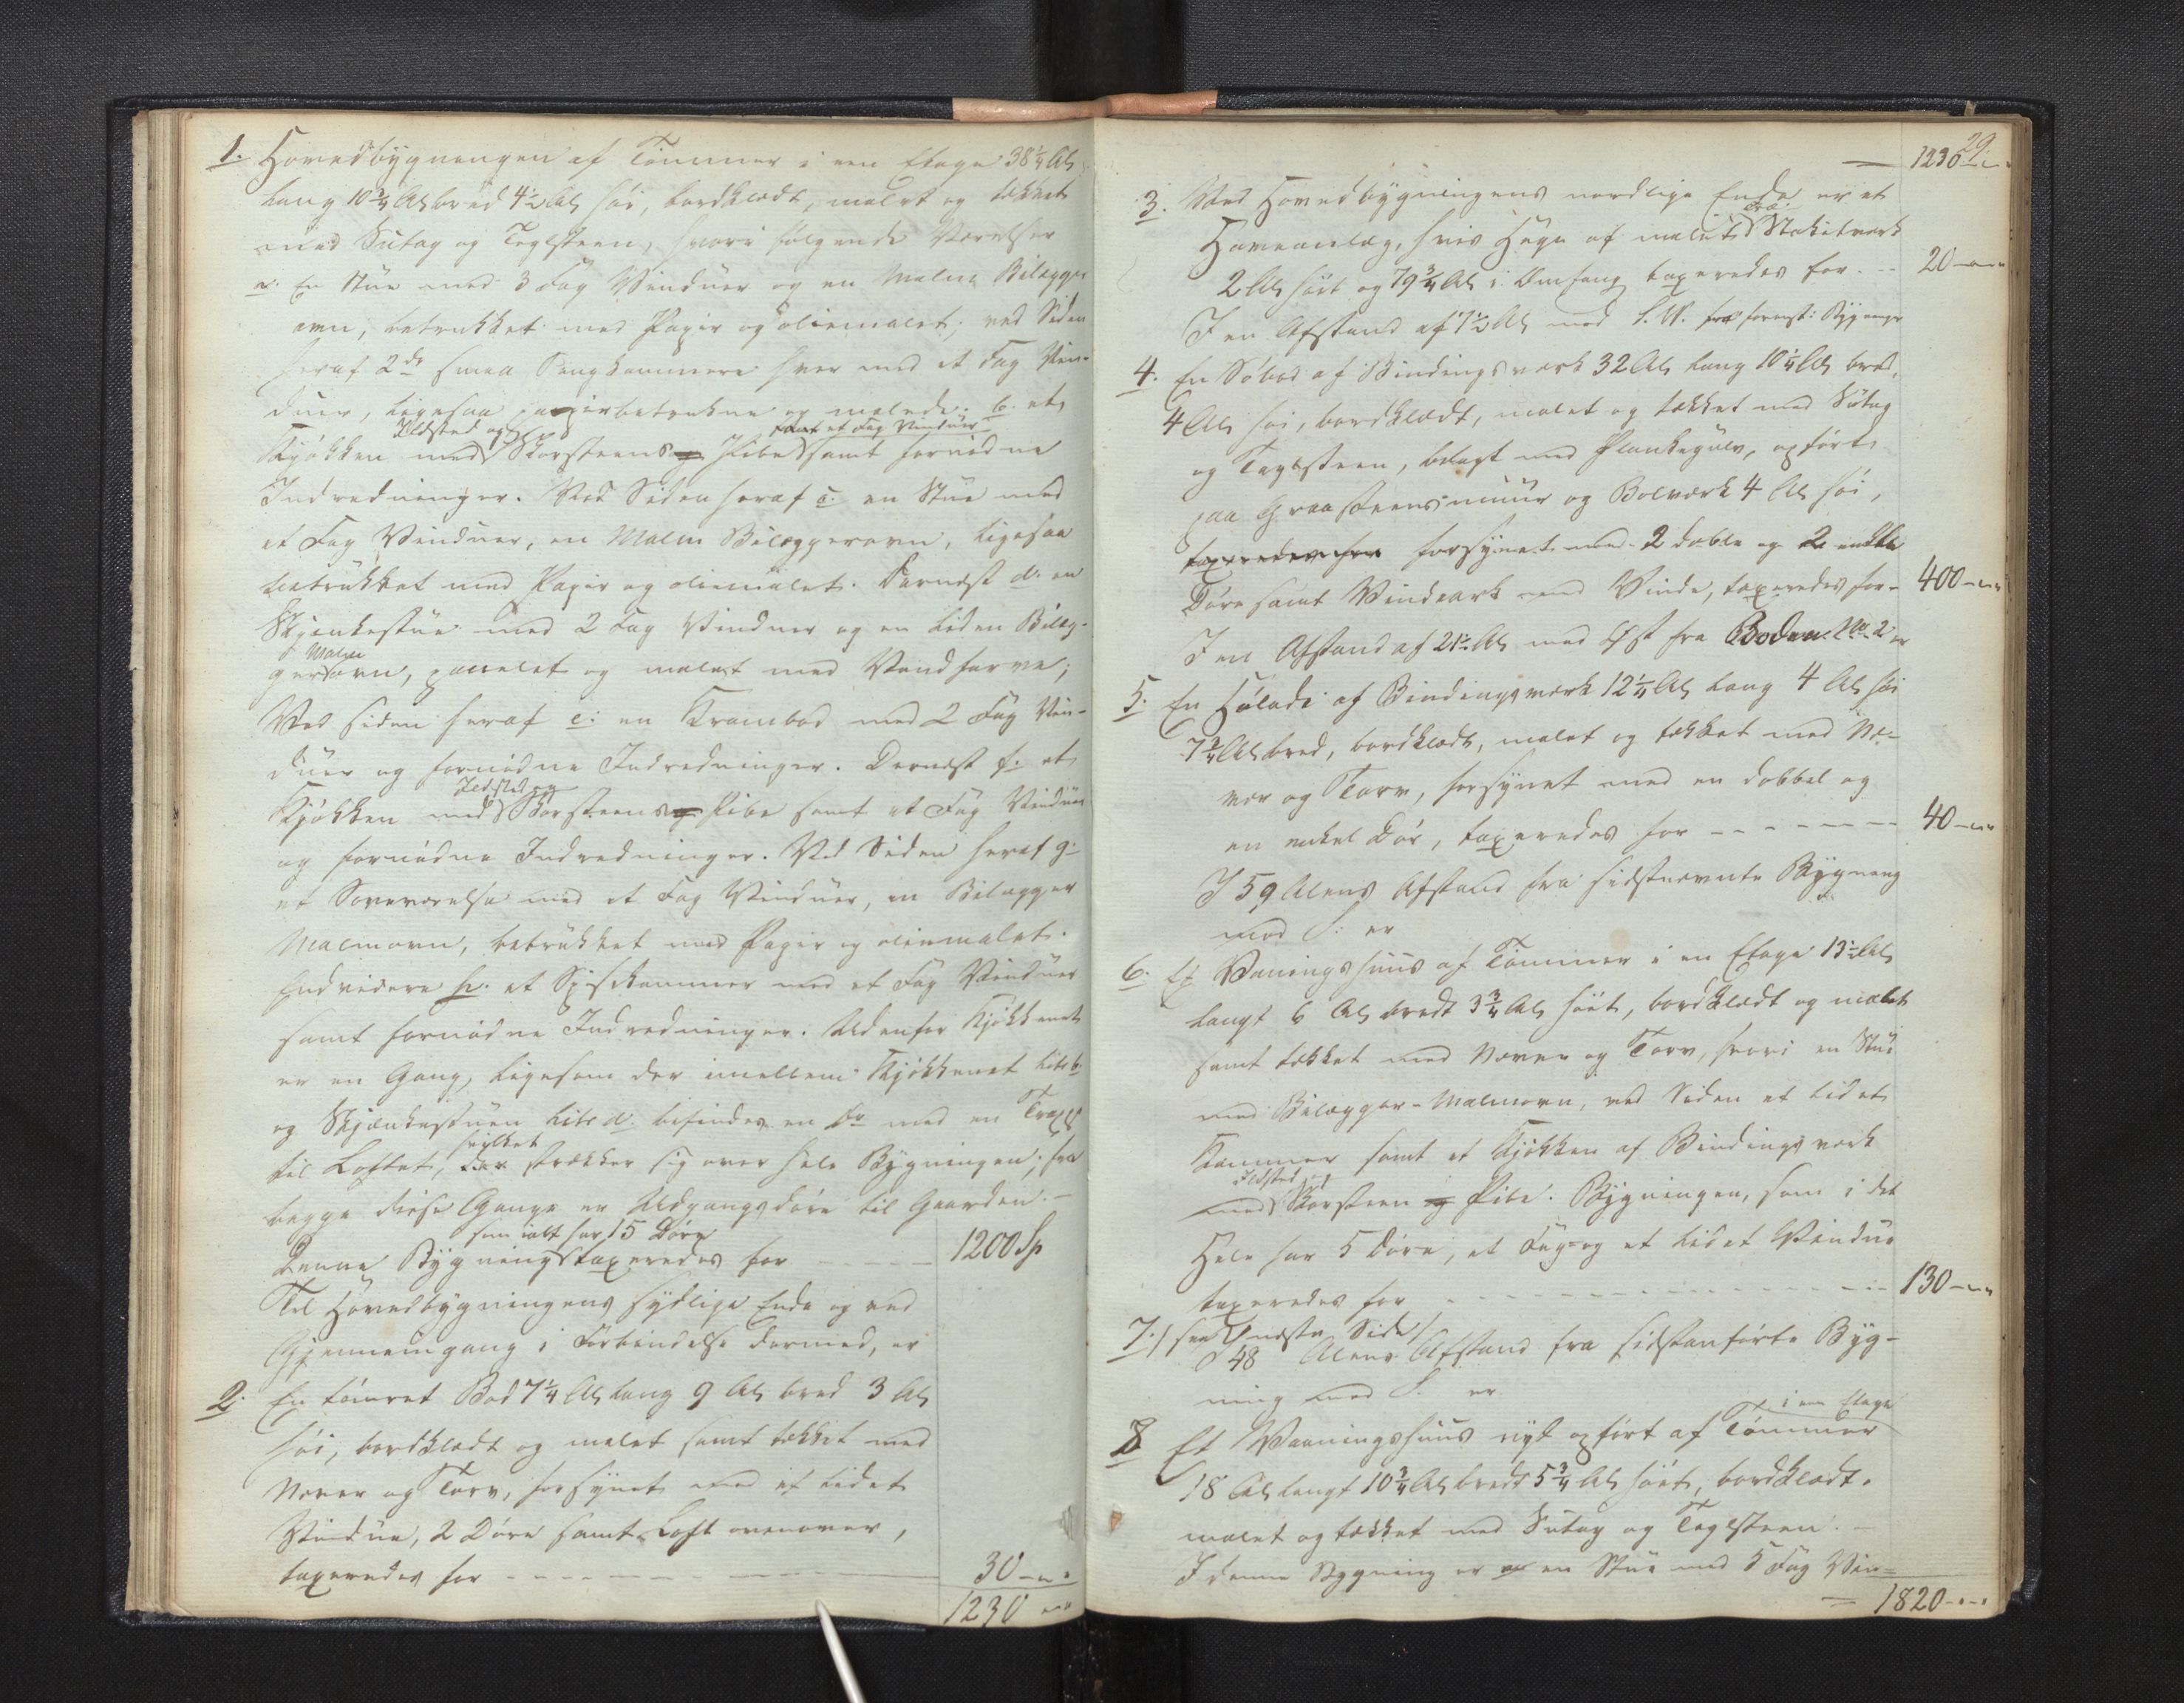 1. Hovedbygningen af Tømmer i een Etage 38 1/4 Al
lang 10 3/4 Al bred 4 1/2 Al høi, bordklædt, malet og tækket
med Sutag og Teglsteen, hvori følgende Værelser
a. En Stue med 3 Fag Vinduer og en Malm Bilægger
ovn, betrukket med Papir og oliemalet; ved Siden
heraf 2de smaa Sengkammere hver med et Fag Vin-
duer, ligesaa papirbetrukne og malede. b. et
Ildsted og samt et Fag Vinduer
Kjøkken med Skorsteens Pibe samt fornødne
Indredninger. Ved Siden heraf c. en Stue med
et Fag Vinduer, en Malm Bilæggerovn, ligesaa
betrukket med Papir og oliemalet. Dernæst d. en
Skjænkestue med 2 Fag Vinduer og en liden Bilæg-
Malm
gerovn, panelet og malet med Vandfarve;
Ved siden heraf e: en Krambod med 2 Fag Vin-
duer og fornødne Indredninger. Dernæst f. et
Ildsted og
Kjøkken med Skorsteens Pibe samt et Fag Vinduer
og fornødne Indredninger. Ved Siden heraf g.
et Soveværelse med et Fag Vinduer, en Bilægger
Malmovn, betrukket med Papir og oliemalet.
Endvidere h. et Spisekammer med et Fag Vinduer
samt fornødne Indredninger. Udenfor Kjøkkenet
er en Gang, ligesom der imellem Kjøkkenet Litr b.
og Skjænkestuen Litr d. befindes en do med en Trappe
hvilket
til Loftet, der strækker sig over hele Bygningen; fra
begge disse Gange er Udgangsdøre til Gaarden. -
som ialt har 15 Døre
Denne Bygning taxeredes for - - - - - 1200 Sp
Ved Hovedbygningens sydlige Ende og ved
Gjennemgang i Forbindelse dermed, er
2. En tømret Bod 7 1/4 Al lang 9 Al bred 3 Al
høi, bordklædt og malet samt tækket med
Never og Torv, forsynet med et lidet
Vindue, 2 Døre samt Loft ovenover,
taxeredes for - - - - - 30 - " -
1230 - " -
29.
- 1230 - " -
3. Ved Hovedbygningens nordlige Ende er et
Træ
Haveanlæg, hvis Hegn af malet Stakitværk
2 Al høit og 79 3/4 Al i Omfang taxeredes for - - 20 - " -
I en Afstand af 7 1/2 Al mod S.V. fra fornæst: Bygninger
4. En Søbod af Bindingsværk 32 Al lang 10 1/4 Al bred,
4 Al høi, bordklædt, malet og tækket med Sutag
og Teglsteen, belagt med Plankegulv, opført
paa Graasteensmuur og Bolværk 4 Al høi,
taxeredes for forsynet med 2 doble og 2 enkle
Døre samt Vindeark med Vinde, taxeredes for - 400 - " -
I en Afstand af 21 1/2 Al mod Øst fra Boden No 2 er
5. En Høladе af Bindingsværk 12 1/4 Al lang 4 Al høi
7 3/4 Al bred, bordklædt, malet og tækket med Ne-
ver og Torv, forsynet med en dobbel og
en enkel Dør, taxeredes for - - - - - - 40 - " -
I 59 Alens Afstand fra sidstnævnte Bygning
mod S: er
6. Et Vaaningshuus af Tømmer i en Etage 13 1/2 Al
langt 6 Al bredt 3 3/4 Al høit, bordklædt og malet
samt tækket med Never og Torv, hvori en Stue
med Bilægger-Malmovn, ved Siden et lidet
Kammer samt et Kjøkken af Bindingsværk
Ildsted og
med Skorsteen og Pibe. Bygningen, som i det
Hele har 5 Døre, et Fag og et lidet Vindue
taxeredes for - - - - - - - - - 130 - " -
7. / see næste Side /
I 48 Alens Afstand fra sidstanførte Byg-
ning mod S. er
i een Etage
8 Et Vaaningshuus nyt opført af Tømmer
18 Al langt 10 3/4 Al bredt 5 3/4 Al høit, bordklædt,
malet og tækket med Sutag og Teglsteen. -
I denne Bygning er en Stue med 5 Fag Vin-
- 1820 - " -